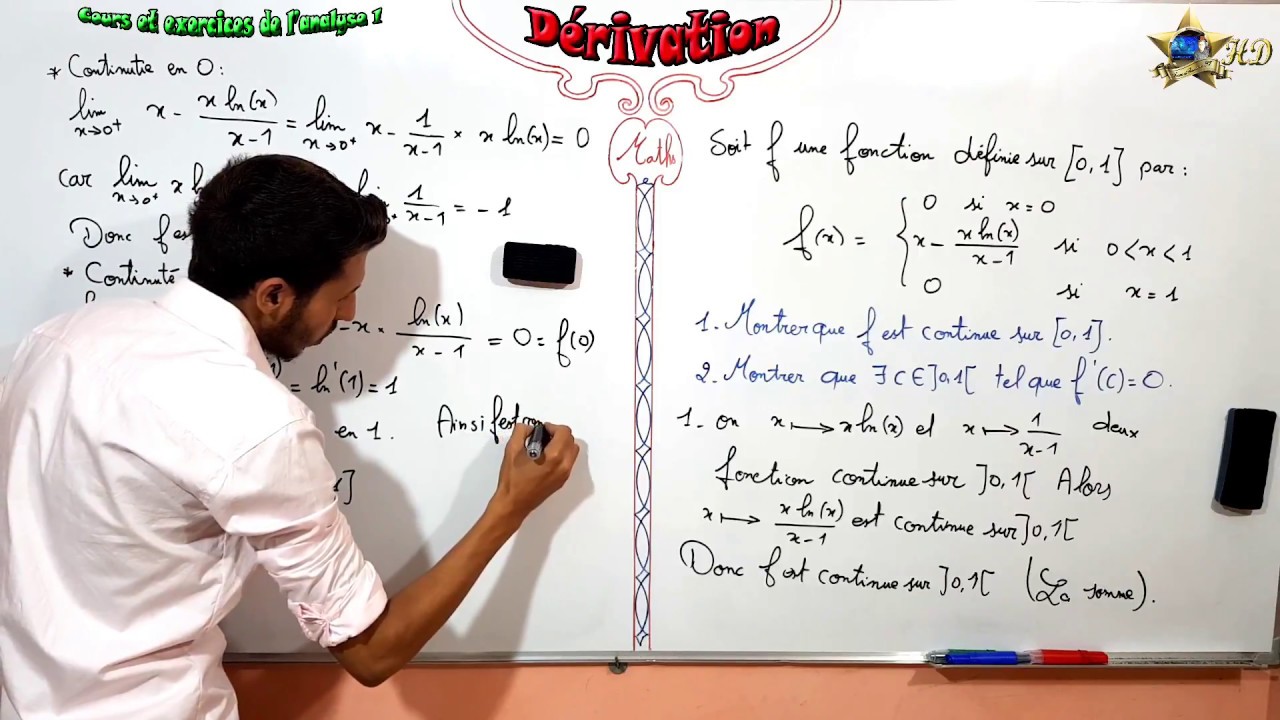 Cours et exercices de l'analyse 1
Dérivation
HD
Maths
* Continutie en 0:
lim x→0⁺ x - x ln(x)/(x-1) = lim x→0⁺ x - 1/(x-1) × x ln(x) = 0
car lim x→0⁺ x 1/(x-1) = -1
Donc f
* Continuité
- x × ln(x)/(x-1) = 0 = f(0)
= ln'(1) = 1
en 1. Ainsi f est
Soit f une fonction définie sur [0,1] par:
f(x) = { 0 si x=0
x - x ln(x)/(x-1) si 0<x<1
0 si x=1
1. Montrer que f est continue sur [0,1].
2. Montrer que ∃ c ∈ ]0,1[ tel que f'(c)=0.
1- on x ↦ x ln(x) et x ↦ 1/(x-1) deux
fonction continue sur ]0,1[ Alors
x ↦ x ln(x)/(x-1) est continue sur ]0,1[
Donc f est continue sur ]0,1[ (La somme).